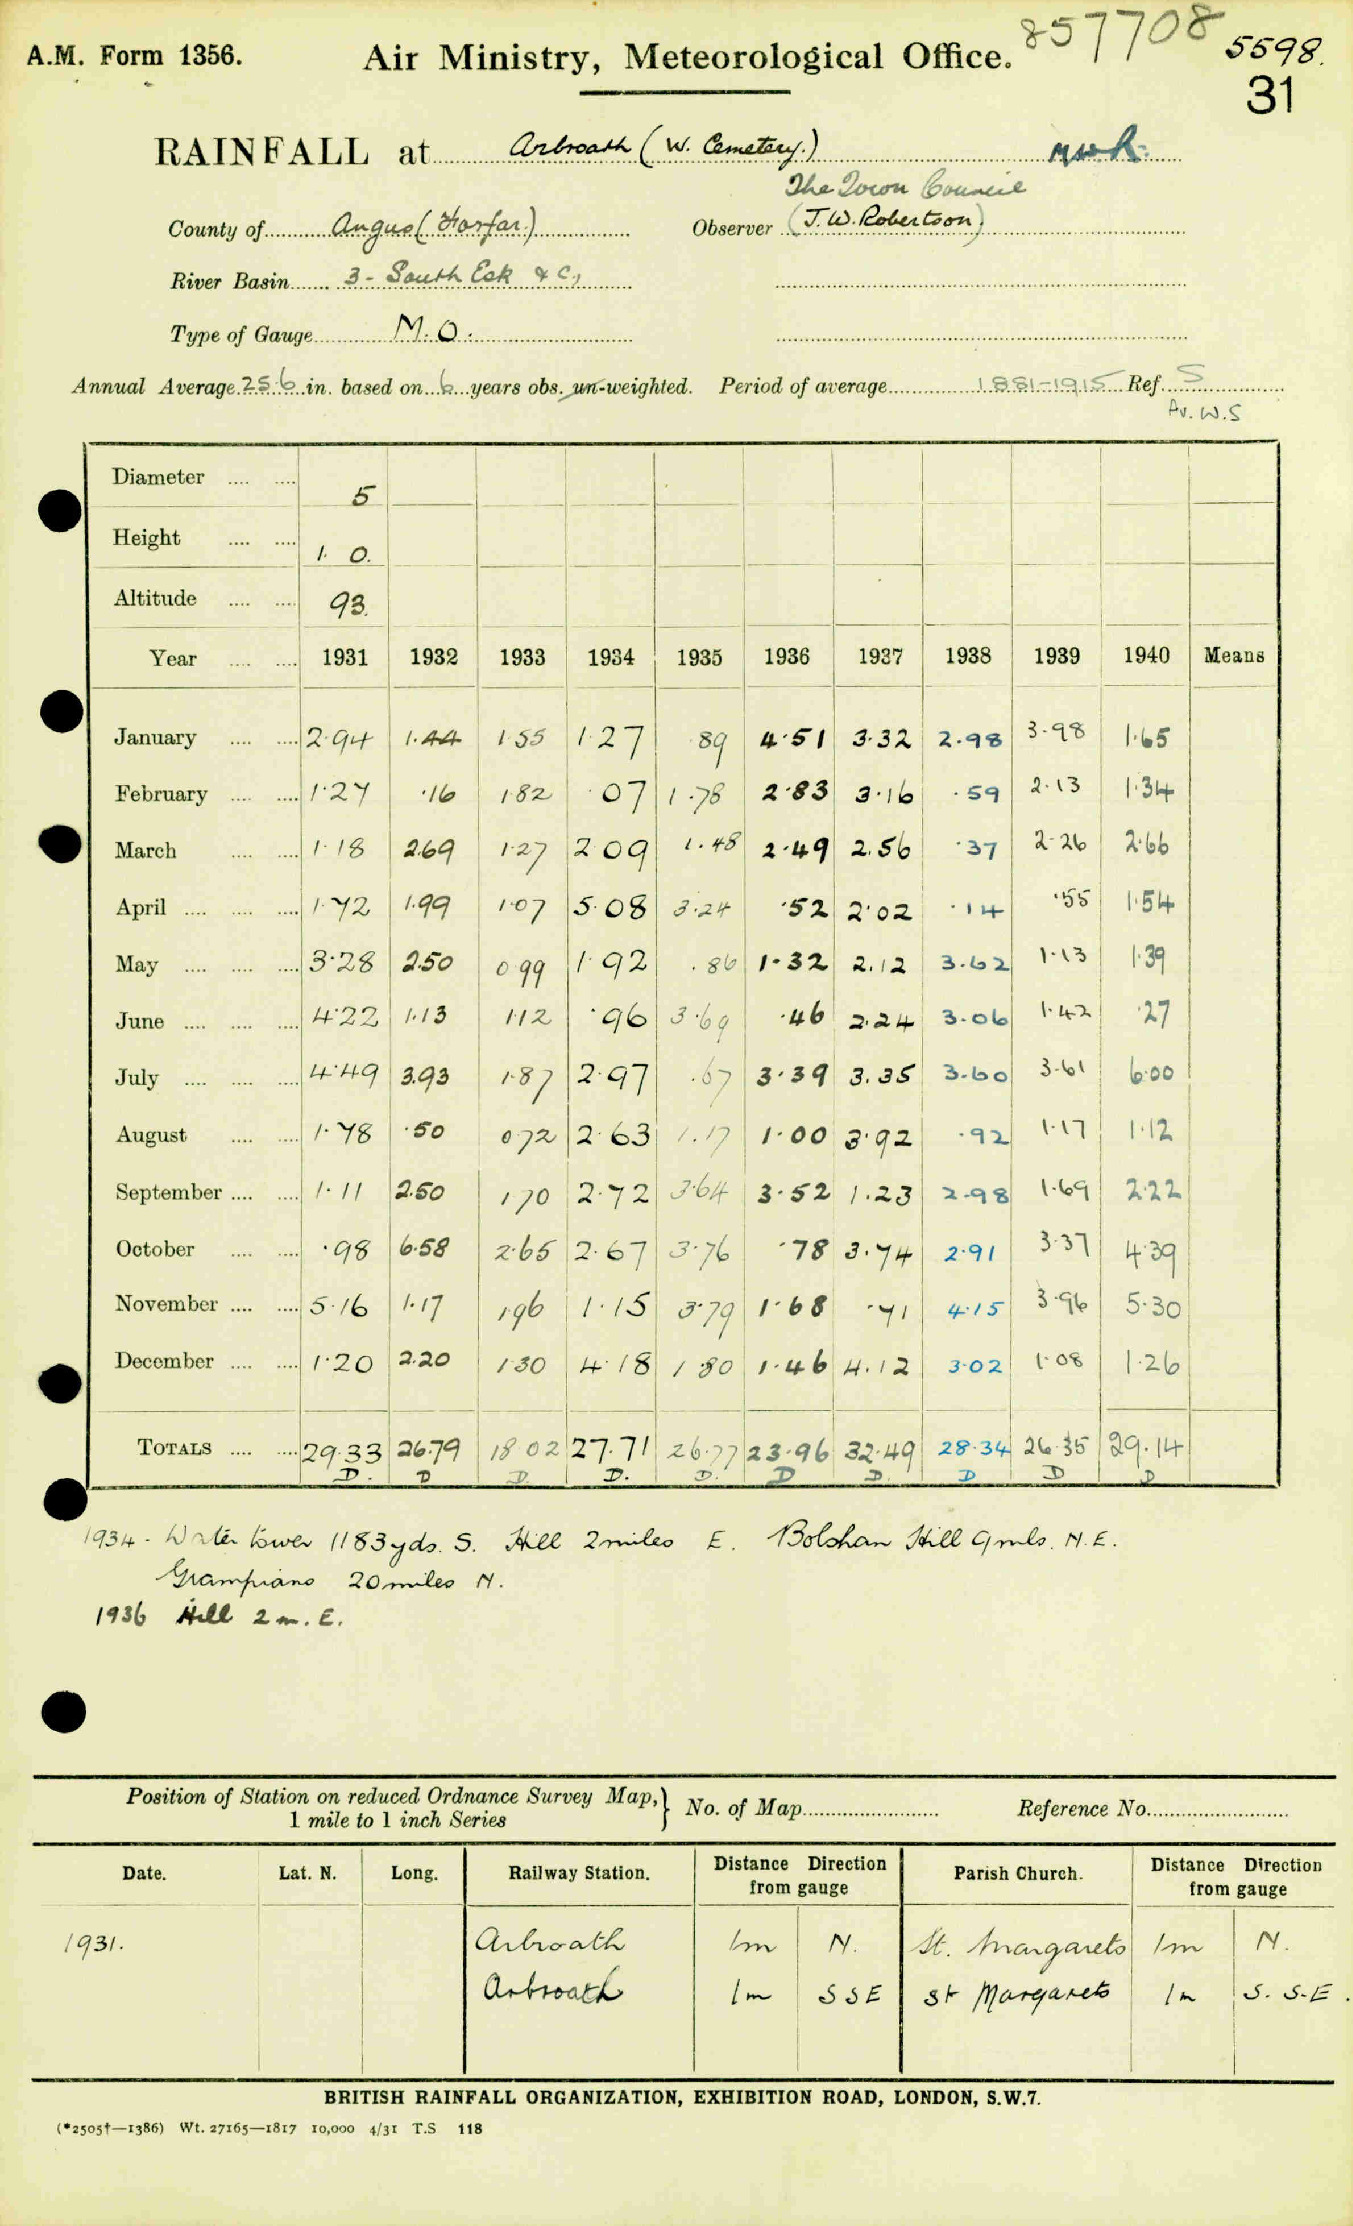 A.M. Form 1356.
Air Ministry, Meteorological Office.
857708
5598.
31
RAINFALL at Arbroath (W. Cemetery.)
The Town Council
County of Angus (Forfar.) Observer (J.W. Robertson)
River Basin 3 - South Esk & C,
Type of Gauge M.O.
Annual Average 25.6 in. based on 6 years obs. un-weighted. Period of average 1881-1915 Ref. S
Av. W.S
Diameter 5
Height 1. 0.
Altitude 93.
Year 1931 1932 1933 1934 1935 1936 1937 1938 1939 1940 Means
January 2.94 1.44 1.55 1.27 .89 4.51 3.32 2.98 3.98 1.65
February 1.27 .16 1.82 .07 1.78 2.83 3.16 .59 2.13 1.34
March 1.18 2.69 1.27 2.09 1.48 2.49 2.56 .37 2.26 2.66
April 1.72 1.99 1.07 5.08 3.24 .52 2.02 .14 .55 1.54
May 3.28 2.50 0.99 1.92 .86 1.32 2.12 3.62 1.13 1.39
June 4.22 1.13 1.12 .96 3.69 .46 2.24 3.06 1.42 .27
July 4.49 3.93 1.87 2.97 .67 3.39 3.35 3.60 3.61 6.00
August 1.78 .50 0.72 2.63 1.17 1.00 3.92 .92 1.17 1.12
September 1.11 2.50 1.70 2.72 3.64 3.52 1.23 2.98 1.69 2.22
October .98 6.58 2.65 2.67 3.76 .78 3.74 2.91 3.37 4.39
November 5.16 1.17 1.96 1.15 3.79 1.68 .71 4.15 3.96 5.30
December 1.20 2.20 1.30 4.18 1.80 1.46 4.12 3.02 1.08 1.26
TOTALS 29.33 26.79 18.02 27.71 26.77 23.96 32.49 28.34 26.35 29.14
D. D D. D. D. D D. D D D
1934 - Water tower 1183 yds. S. Hill 2 miles E. Bolshan Hill 9 mls. N.E.
Grampians 20 miles N.
1936 Hill 2 m. E.
Position of Station on reduced Ordnance Survey Map,} No. of Map Reference No.
1 mile to 1 inch Series
Date. Lat. N. Long. Railway Station. Distance Direction from gauge Parish Church. Distance Direction from gauge
1931. Arbroath 1m N. St. Margarets 1m N.
Arbroath 1m SSE St Margarets 1m S. S.E.
BRITISH RAINFALL ORGANIZATION, EXHIBITION ROAD, LONDON, S.W.7.
(*2505†—1386) Wt. 27165—1817 10,000 4/31 T.S 118